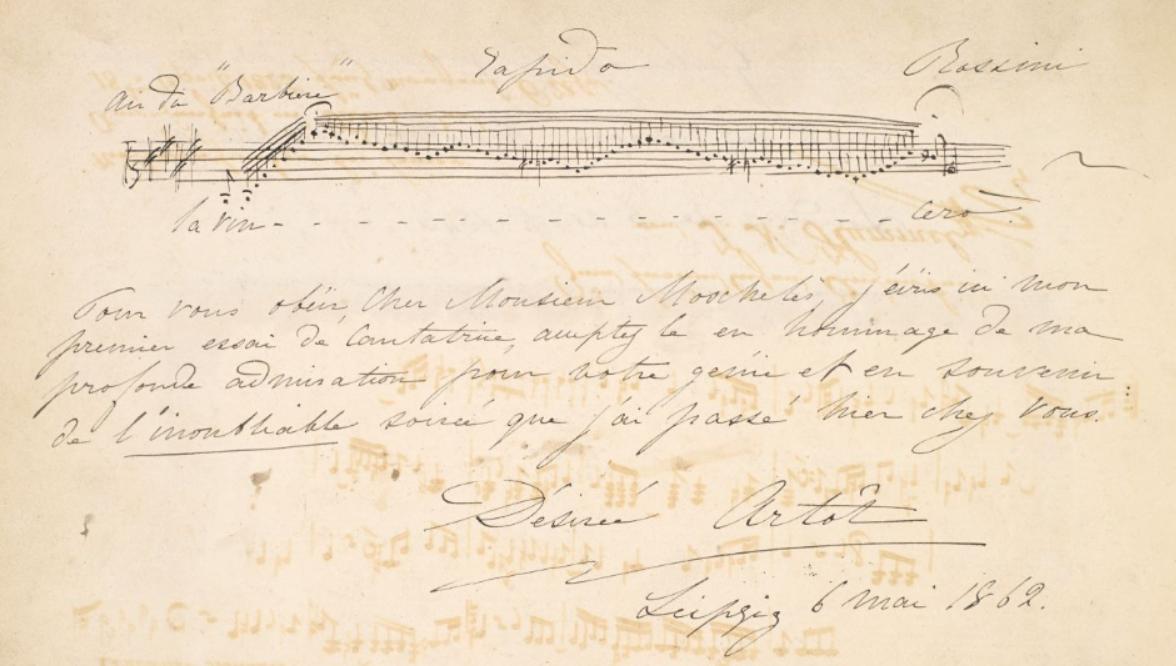 rapido
Rossini
air du "Barbiere"
la vin- - - - - - - - - - - - - - - - cerò.
Pour vous obéir, Cher Monsieur Moscheles, j'écris ici mon
premier essai de Cantatrice, acceptez le en hommage de ma
profonde admiration pour votre génie et en souvenir
de l'inoubliable soirée que j'ai passé hier chez vous.
Désirée Artôt
Leipzig 6 mai 1862.